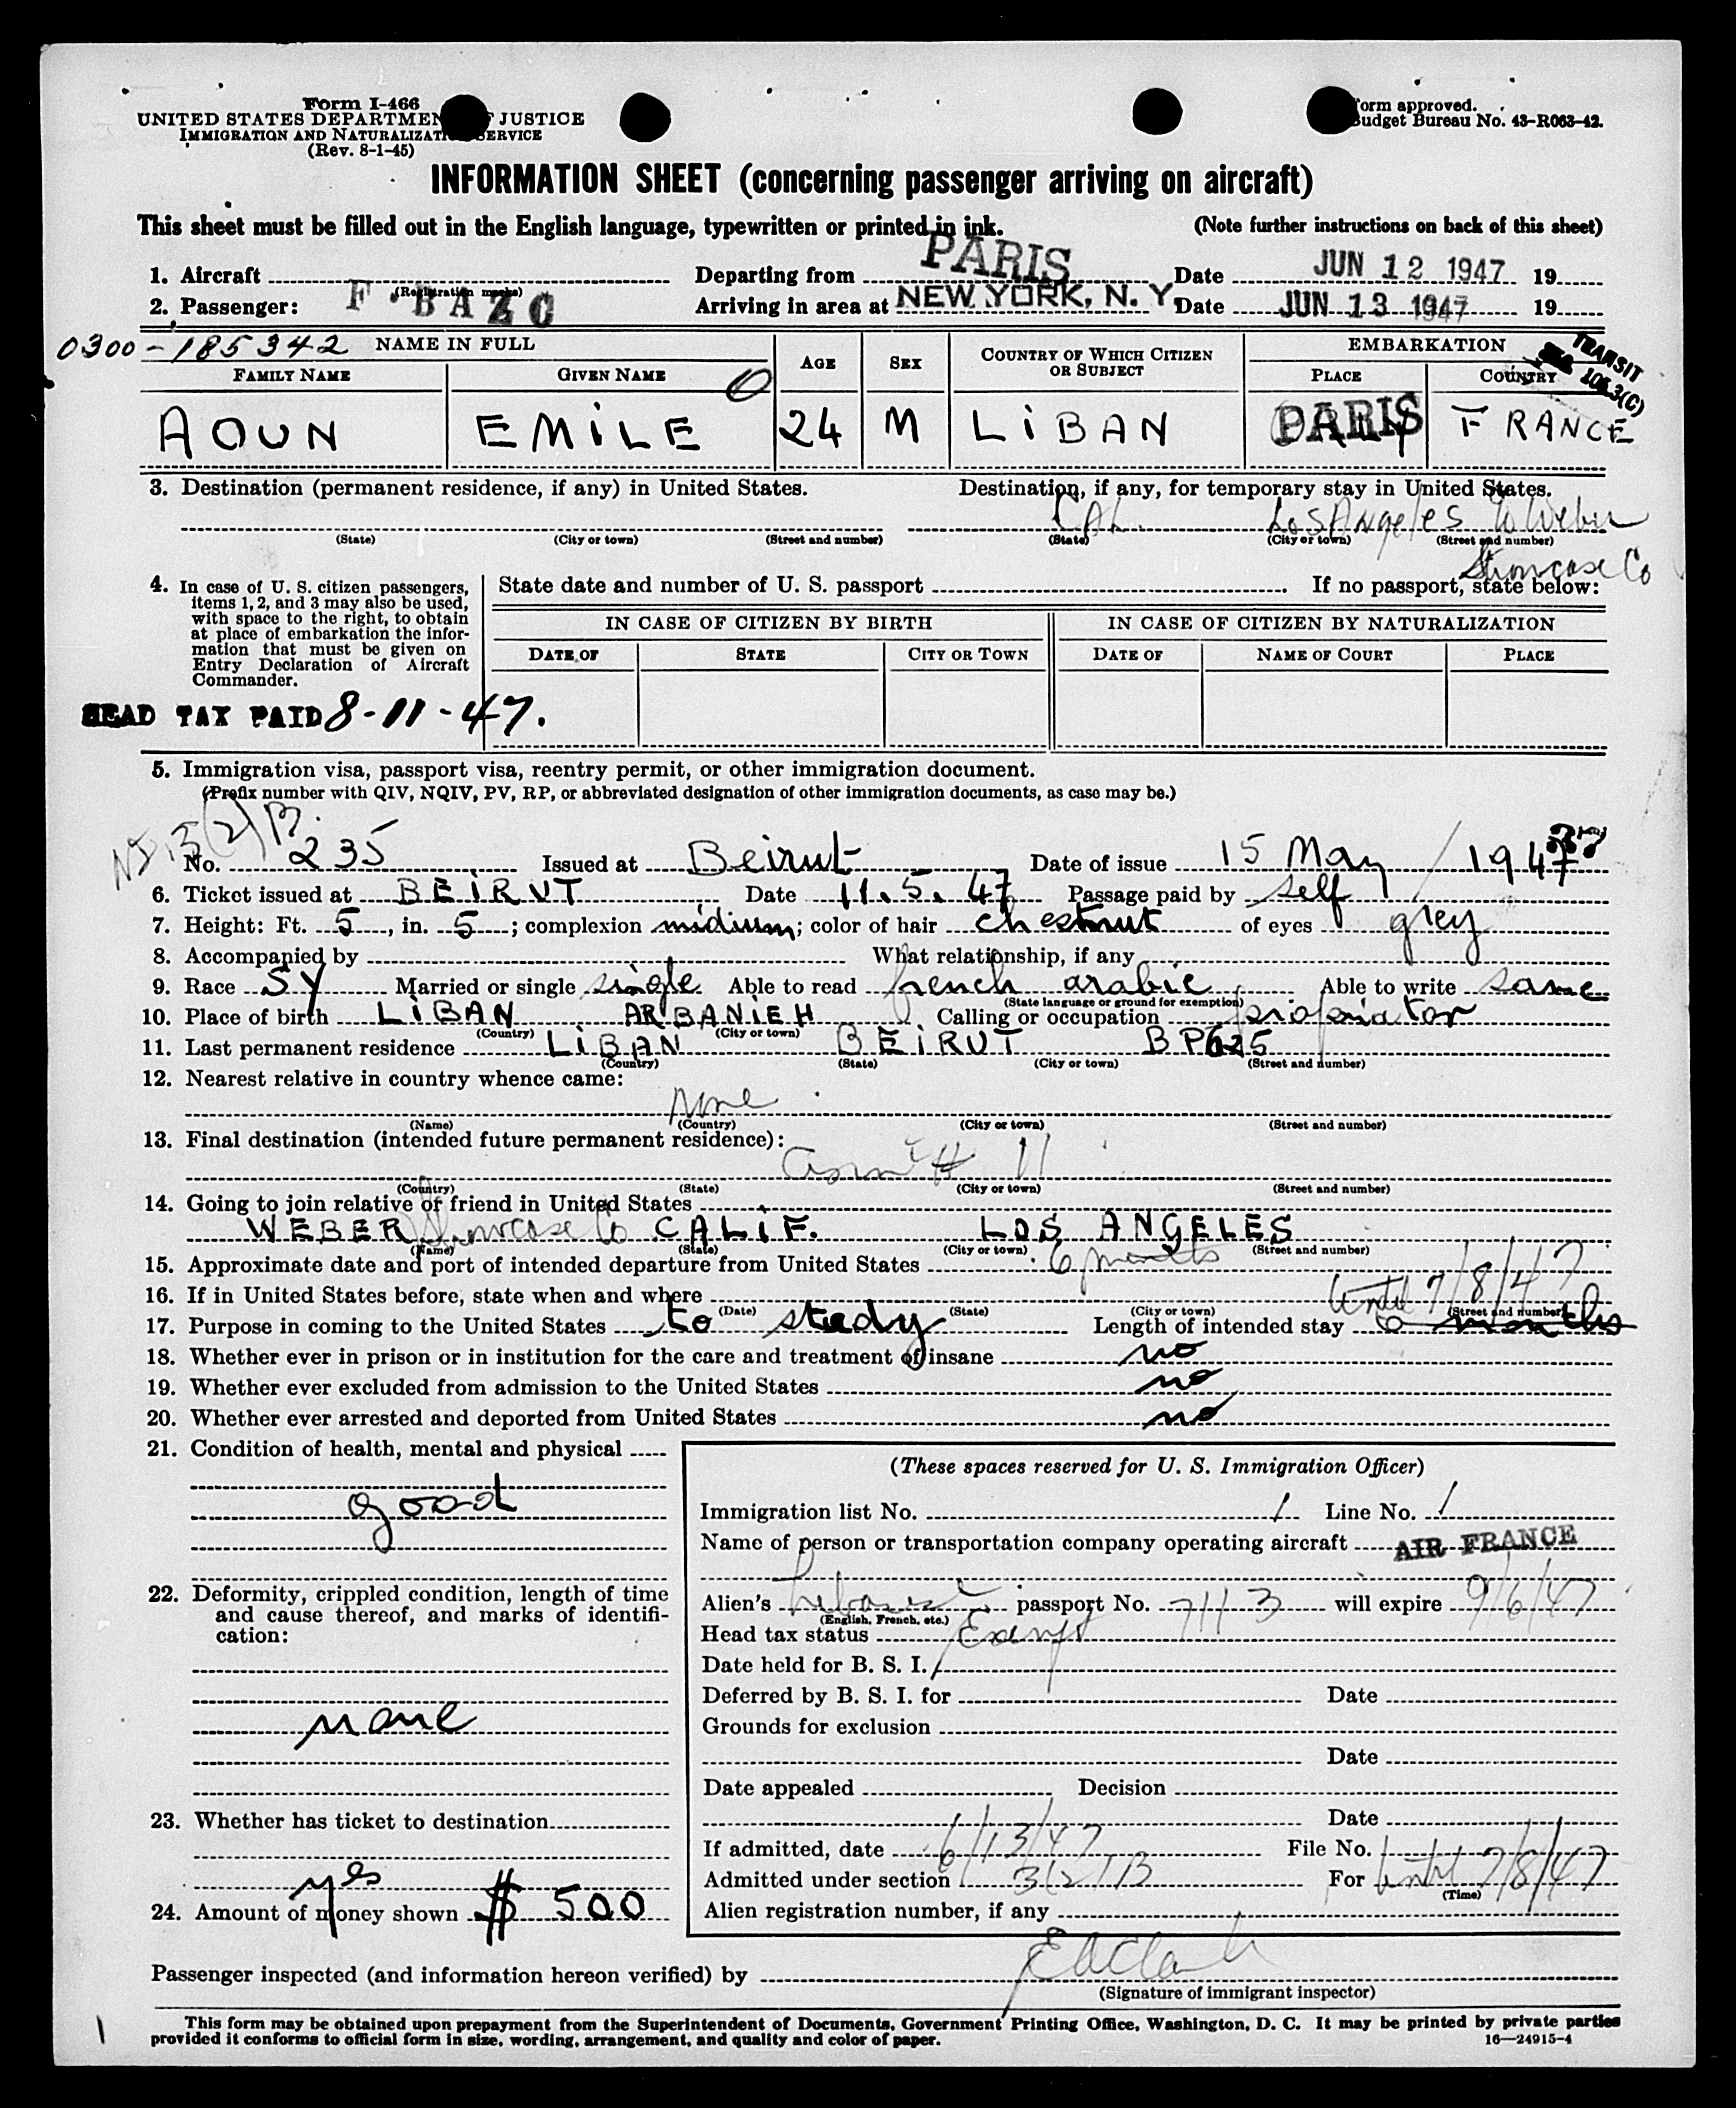 Form I-466
UNITED STATES DEPARTMENT OF JUSTICE
IMMIGRATION AND NATURALIZATION SERVICE
(Rev. 8-1-45)
Form approved.
Budget Bureau No. 43-R063-42.
INFORMATION SHEET (concerning passenger arriving on aircraft)
This sheet must be filled out in the English language, typewritten or printed in ink. (Note further instructions on back of this sheet)
1. Aircraft F-BAZC (Registration marks) Departing from PARIS Date JUN 12 1947 19
2. Passenger: Arriving in area at NEW YORK, N. Y. Date JUN 13 1947 19
0300-185342 NAME IN FULL
AGE SEX COUNTRY OF WHICH CITIZEN OR SUBJECT EMBARKATION
TRANSIT
FAMILY NAME GIVEN NAME PLACE COUNTRY
AOUN EMILE 24 M LIBAN PARIS FRANCE
3. Destination (permanent residence, if any) in United States. Destination, if any, for temporary stay in United States.
CAL. Los Angeles % Weber
(State) (City or town) (Street and number) (State) (City or town) (Street and number)
Showcase Co
4. In case of U. S. citizen passengers, items 1, 2, and 3 may also be used, with space to the right, to obtain at place of embarkation the information that must be given on Entry Declaration of Aircraft Commander.
State date and number of U. S. passport If no passport, state below:
IN CASE OF CITIZEN BY BIRTH IN CASE OF CITIZEN BY NATURALIZATION
DATE OF STATE CITY OR TOWN DATE OF NAME OF COURT PLACE
HEAD TAX PAID 8-11-47.
5. Immigration visa, passport visa, reentry permit, or other immigration document.
(Prefix number with QIV, NQIV, PV, RP, or abbreviated designation of other immigration documents, as case may be.)
No. 235 Issued at Beirut Date of issue 15 May 1947
6. Ticket issued at BEIRUT Date 11.5.47 Passage paid by self
7. Height: Ft. 5, in. 5; complexion midium; color of hair chestnut of eyes grey
8. Accompanied by What relationship, if any
9. Race SY Married or single single Able to read french arabic Able to write same
(State language or ground for exemption)
10. Place of birth LIBAN ARBANIEH Calling or occupation
(Country) (City or town)
11. Last permanent residence LIBAN BEIRUT BP625
(Country) (State) (City or town) (Street and number)
12. Nearest relative in country whence came:
None
(Name) (Country) (City or town) (Street and number)
13. Final destination (intended future permanent residence):
(Country) (State) (City or town) (Street and number)
14. Going to join relative or friend in United States
WEBER Showcase Co CALIF. LOS ANGELES
(Name) (State) (City or town) (Street and number)
15. Approximate date and port of intended departure from United States 6 months
16. If in United States before, state when and where until 7/8/47
(Date) (State) (City or town) (Street and number)
17. Purpose in coming to the United States to study Length of intended stay 6 months
18. Whether ever in prison or in institution for the care and treatment of insane no
19. Whether ever excluded from admission to the United States no
20. Whether ever arrested and deported from United States no
21. Condition of health, mental and physical
good
22. Deformity, crippled condition, length of time and cause thereof, and marks of identification:
none
23. Whether has ticket to destination
yes
24. Amount of money shown $ 500
(These spaces reserved for U. S. Immigration Officer)
Immigration list No. 1 Line No. 1
Name of person or transportation company operating aircraft AIR FRANCE
Alien's Lebanese passport No. 7113 will expire 9/6/47
(English, French, etc.)
Head tax status Exempt
Date held for B. S. I.
Deferred by B. S. I. for Date
Grounds for exclusion
Date
Date appealed Decision
Date
If admitted, date 6/13/47 File No.
Admitted under section 3(2)B For until 7/8/47
(Time)
Alien registration number, if any
Passenger inspected (and information hereon verified) by
(Signature of immigrant inspector)
This form may be obtained upon prepayment from the Superintendent of Documents, Government Printing Office, Washington, D. C. It may be printed by private parties
provided it conforms to official form in size, wording, arrangement, and quality and color of paper. 16—24915-4